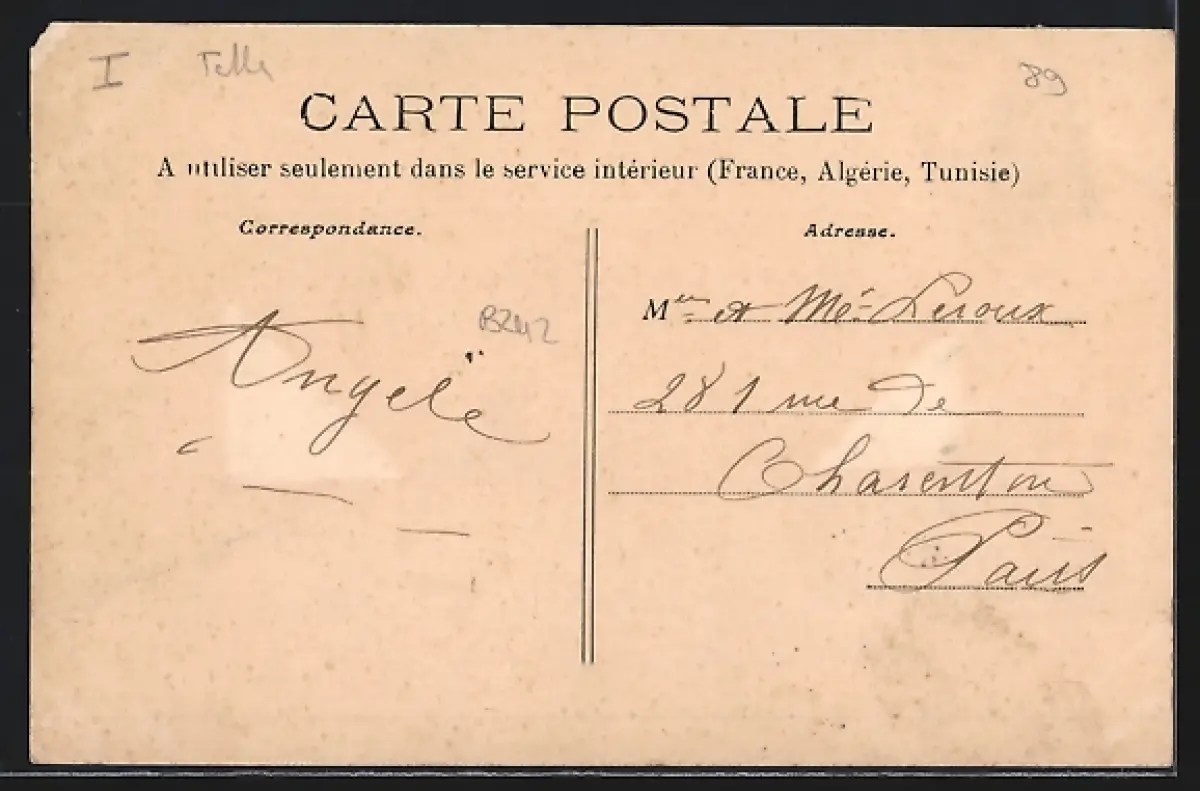 I
89
CARTE POSTALE
A utiliser seulement dans le service intérieur (France, Algérie, Tunisie)
Correspondance.
Adresse.
Angèle
Mr et Mé Leroux
281 rue de
Charenton
Paris